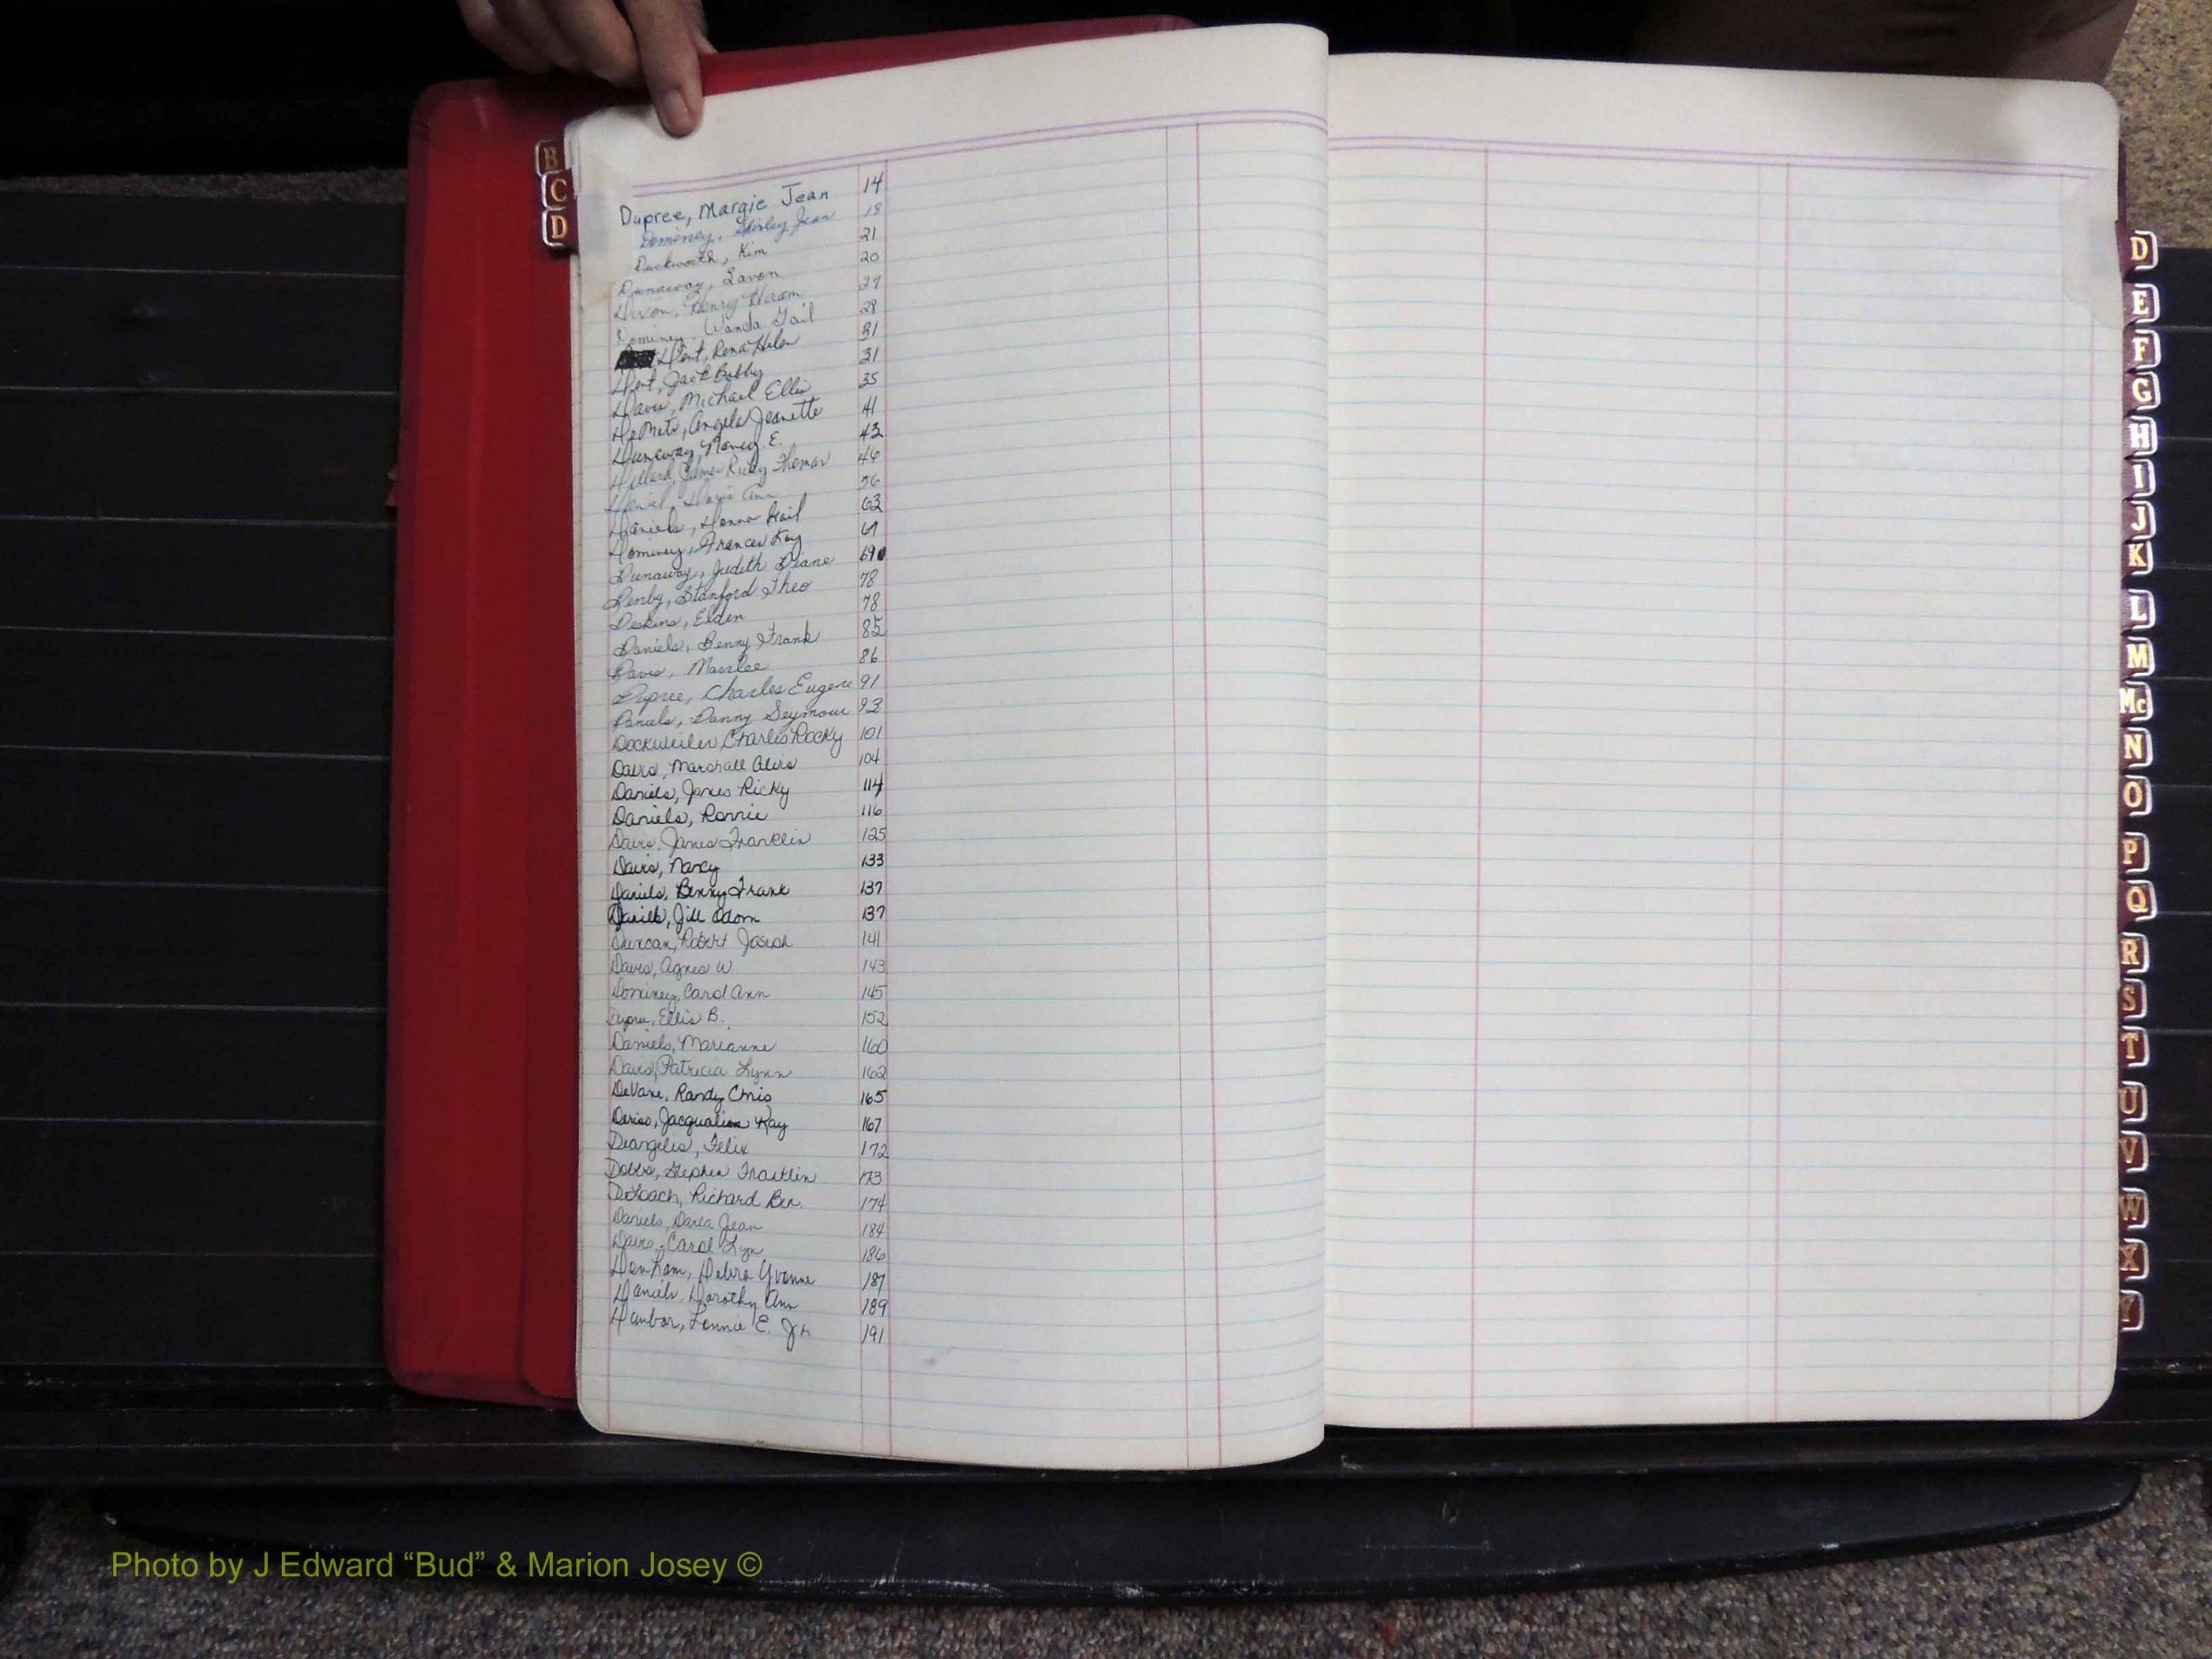 B
C
D
Dupree, Margie Jean 14
Dominey, Shirley Jean 18
Duckworth, Kim 21
Dunaway, Lavon 20
Dixon, Henry Hiram 27
Dominey, Wanda Gail 28
Dent, Rena Helen 31
Dent, Jack Bobby 31
Davis, Michael Ellis 35
DeMets, Angela Jeanette 41
Dunaway, Nancy E. 43
Dillard, James Ricky Thomas 46
Daniel, Doris Ann 56
Daniels, Donna Gail 63
Dominey, Frances Kay 67
Dunaway, Judith Diane 69
Denby, Stanford Theo 78
Deskins, Elden 78
Daniels, Benny Frank 85
Davis, Marilee 86
Dupree, Charles Eugene 91
Daniels, Danny Seymour 93
Dockweiler, Charles Rocky 101
Davis, Marshall 104
Daniels, James Ricky 114
Daniels, Ronnie 116
Davis, James Franklin 125
Davis, Nancy 133
Daniels, Benny Frank 137
Daniels, Jill Odom 137
Duncan, Robert Joseph 141
Davis, Agnes W. 143
Dominey, Carol Ann 145
Ellis B. 152
Daniels, Marianne 160
Davis, Patricia Lynn 162
DeVane, Randy Chris 165
Deriso, Kay 167
Deangelis, Felix 172
Dobbs, Stephen Franklin 173
DeLoach, Richard Ben. 174
Daniels, Darla Jean 184
Davis, Carol Lyn 186
Denham, Debra Yvonne 187
Daniels, Dorothy Ann 189
Lonnie E. Jr. 191
D
E
F
G
H
I
J
K
L
M
Mc
N
O
P
Q
R
S
T
U
V
W
X
Y
Photo by J Edward “Bud” & Marion Josey ©